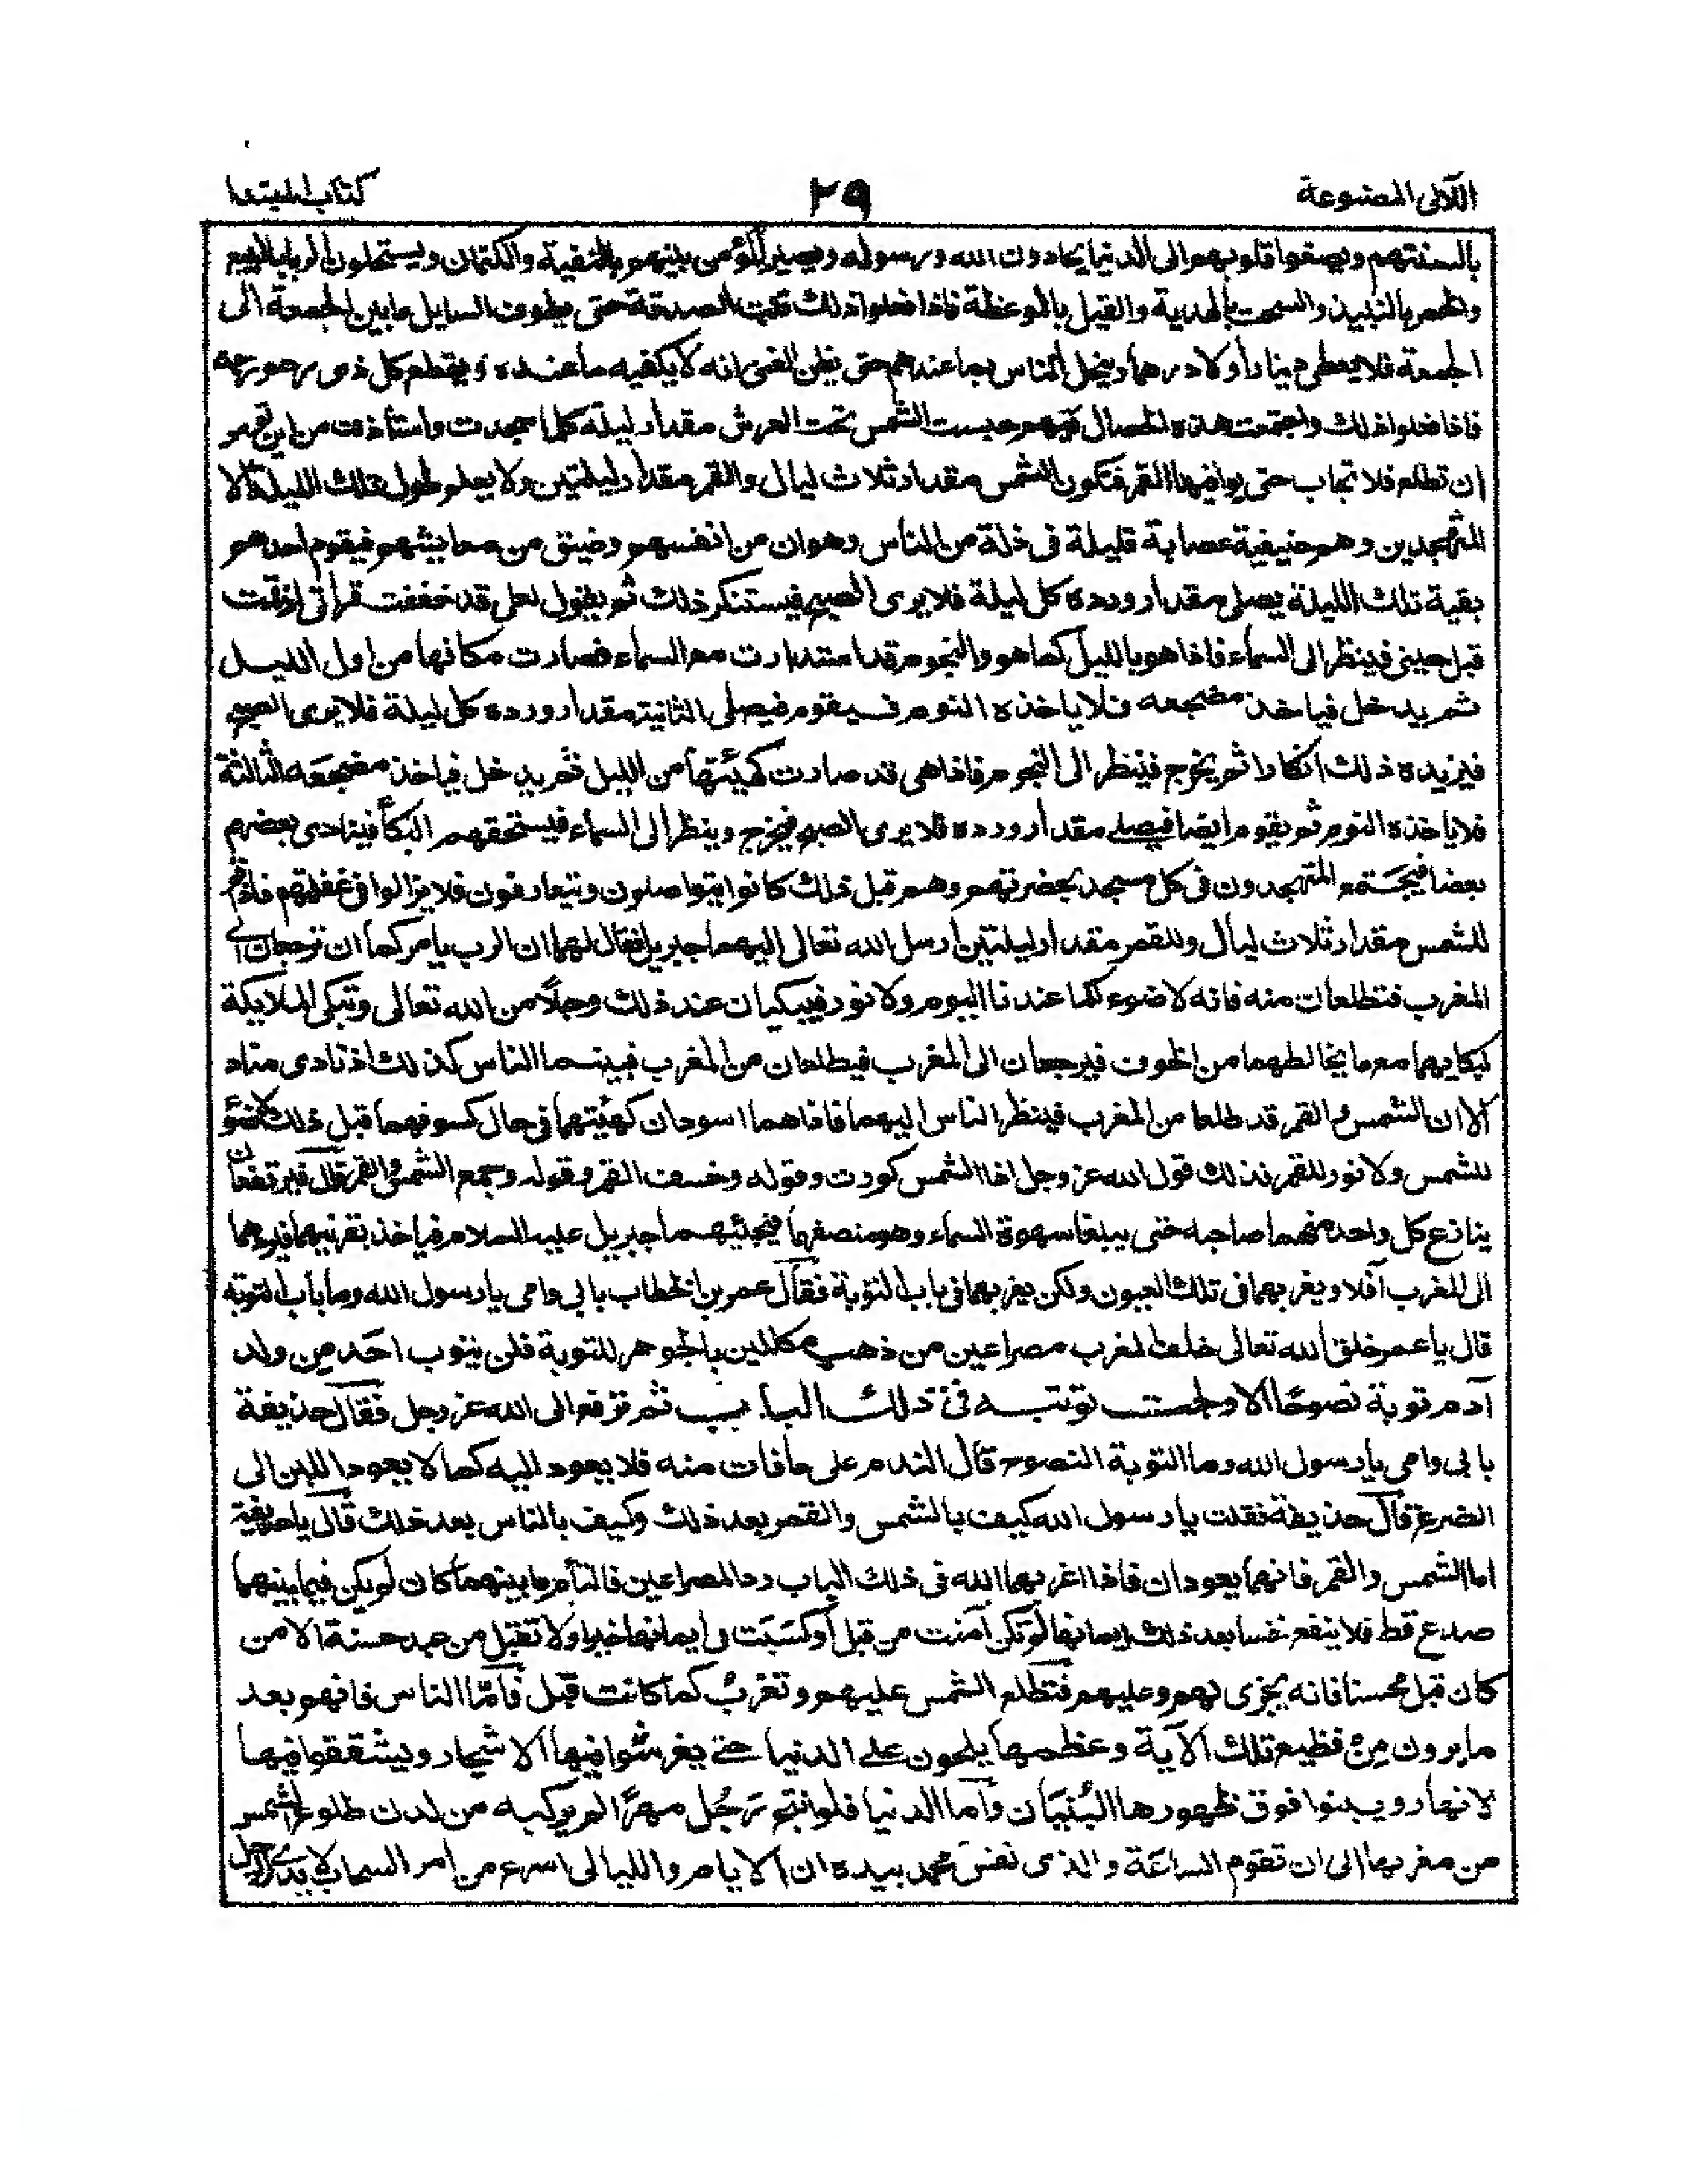 اللآلى المصنوعة
٢٩
كتاب المبتدا
بالسنتهم ويصغوا قلوبهم الى الدنيا يحادون الله ورسوله ويصير المؤمن بينهم بالتقية والكتمان ويستحلون الربا بالبيع
والخمر بالنبيذ والسحت بالهدية والقيل بالموعظة فاذا فعلوا ذلك قلت الصدقة حتى يطوف السايل مابين الجمعة الى
الجمعة فلا يعطى دينارا ولا درهما ويبخل الناس بما عندهم حتى يظن الغنى انه لا يكفيه ما عنده ويقطع كل ذى رحم رحمه
فاذا فعلوا ذلك واجتمعت هذه الخصال فيهم حبست الشمس تحت العرش مقدار ليلة كلما سجدت واستأذنت من اين تؤمر
ان تطلع فلا تجاب حتى يوافيها القمر فتكون الشمس مقدار ثلاث ليال والقمر مقدار ليلتين ولا يعلم طول تلك الليلة الا
المتهجدين وهم حنيفية عصابة قليلة فى ذلة من الناس وهوان من انفسهم وضيق من معايشهم فيقوم احدهم
بقية تلك الليلة يصلى مقدار ورده كل ليلة فلا يرى الصبح فيستنكر ذلك ثم يقول لعلى قد خففت قراتى اذ قمت
قبل حينى فينظر الى السماء فاذا هو بالليل كما هو والنجوم قد استدارت مع السماء فصارت مكانها من اول الليل
ثم يدخل فياخذ مضجعه فلا ياخذه النوم فيقوم فيصلى الثانية مقدار ورده كل ليلة فلا يرى الصبح
فيزيده ذلك انكارا ثم يخرج فينظر الى النجوم فاذا هى قد صارت كهيئتها من الليل ثم يدخل فياخذ مضجعه الثالثة
فلا ياخذه النوم ثم يقوم ايضا فيصلى مقدار ورده فلا يرى الصبح فيخرج وينظر الى السماء فيستخفهم البكأ فينادى بعضهم
بعضا فيجتمع المتهجدون فى كل مسجد بحضرتهم وهم قبل ذلك كانوا يتواصلون ويتعارفون فلا يزالوا فى غفلتهم فاذا تم
للشمس مقدار ثلاث ليال وللقمر مقدار ليلتين ارسل الله تعالى اليهما جبريل فقال لهما ان الرب يامركما ان ترجعان الى
المغرب فتطلعان منه فانه لا ضوء لكما عندنا اليوم ولا نور فيبكيان عند ذلك وجلا من الله تعالى وتبكى الملايكة
لبكايهما مع ما يخالطهما من الخوف فيرجعان الى المغرب فيطلعان من المغرب فبينما الناس كذلك اذ نادى مناد
الا ان الشمس والقمر قد طلعا من المغرب فينظر الناس اليهما فاذا هما اسودان كهيئتهما فى حال كسوفهما قبل ذلك لا ضوء
للشمس ولا نور للقمر فذلك قول الله عز وجل اذا الشمس كورت وقوله وخسف القمر وقوله وجمع الشمس والقمر قال فيرتفعان
ينازع كل واحد منهما صاحبه حتى يبلغا سهوة السماء وهو منصفهما فيجئيهما جبريل عليه السلام فياخذ بقرنيهما فيردهما
الى المغرب آفلا ويغربهما فى تلك العيون ولكن يغربهما فى باب التوبة فقال عمر بن الخطاب بابى وامى يا رسول الله وما باب التوبة
قال يا عمر خلق الله تعالى خلف المغرب مصراعين من ذهب مكللين بالجوهر للتوبة فلن يتوب احد من ولد
آدم توبة نصوحا الا ولجت توبته فى ذلك الباب ثم ترفع الى الله عز وجل فقال حذيفة
بابى وامى يا رسول الله وما التوبة النصوح قال الندم على ما فات منه فلا يعود اليه كما لا يعود اللبن الى
الضرع قال حذيفة فقلت يا رسول الله كيف بالشمس والقمر بعد ذلك وكيف بالناس بعد ذلك قال يا حذيفة
اما الشمس والقمر فانهما يعودان فاذا اغربهما الله فى ذلك الباب رد المصراعين فالتأم ما بينهما كان لم يكن فيما بينهما
صدع قط فلا ينفع نفسا بعد ذلك ايمانها لم تكن آمنت من قبل او كسبت فى ايمانها خيرا ولا تقبل من عبد حسنة الا من
كان قبل محسنا فانه يجزى لهم وعليهم فتطلع الشمس عليهم وتغرب كما كانت قبل فأمّا الناس فانهم بعد
ما يرون من فظيع تلك الآية وعظمها يلحون على الدنيا حتى يغرشوا فيها الاشجار ويشققوا فيها
لانهار ويبنوا فوق ظهورها البنيان وأما الدنيا فلو انتج رجل مهرا لم يركبه من لدن طلوع الشمس
من مغربها الى ان تقوم الساعة والذى نفس محمد بيده ان الايام والليالى اسرع من امر السحاب لا يدرى الرجل